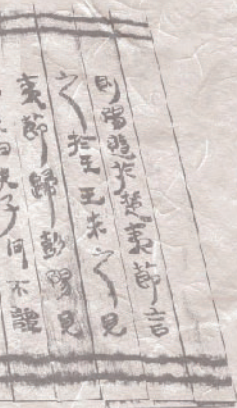 則陽遊扵楚夷節言
之扵王王未之見
夷節歸彭陽見
曰夫子何不譚